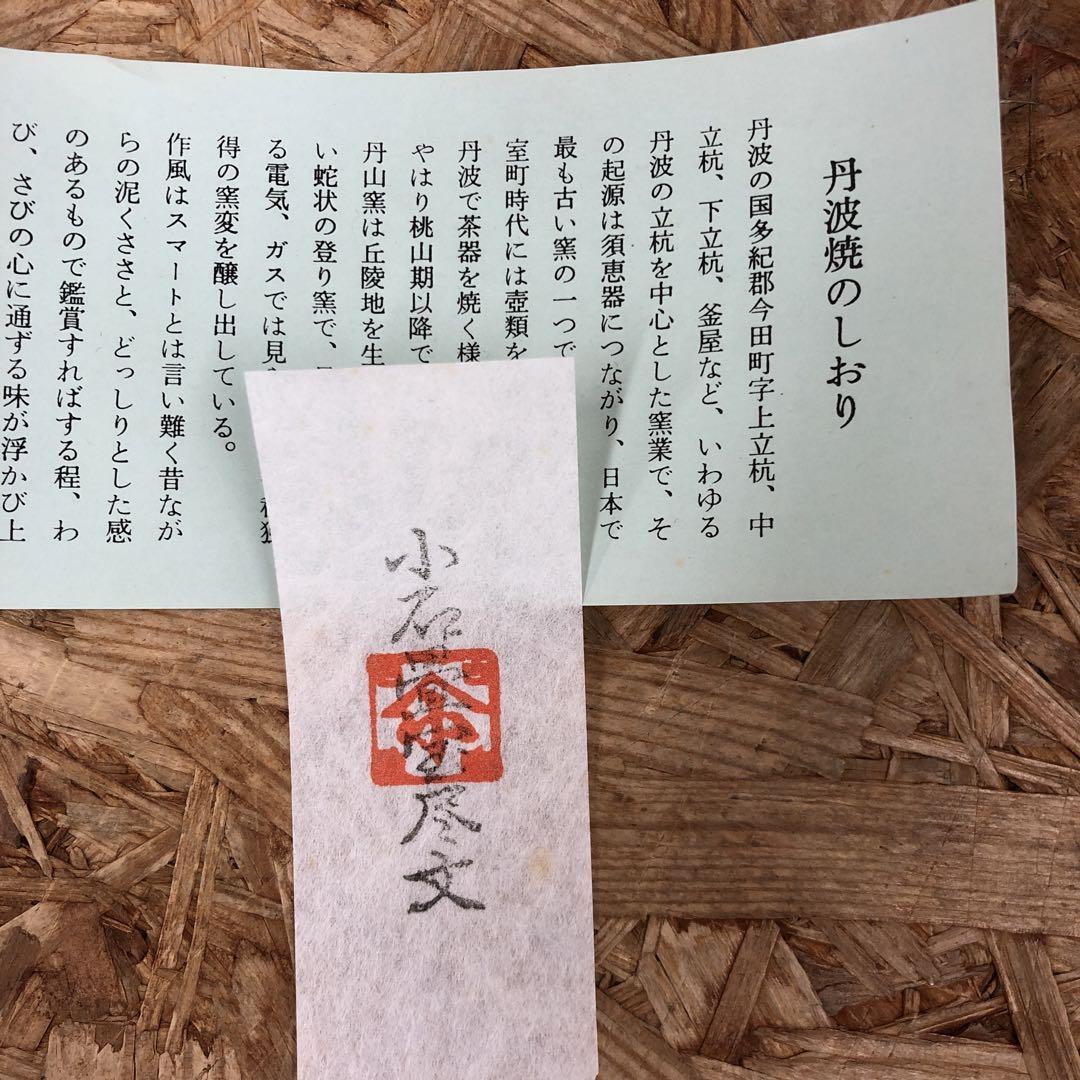 丹波焼のしおり
丹波の国多紀郡今田町字上立杭、中
立杭、下立杭、釜屋など、いわゆる
丹波の立杭を中心とした窯業で、そ
の起源は須恵器につながり、日本で
最も古い窯の一つで
室町時代には壺類を
丹波で茶器を焼く様
やはり桃山期以降で
丹山窯は丘陵地を生
い蛇状の登り窯で、
る電気、ガスでは見
得の窯変を醸し出している。
作風はスマートとは言い難く昔なが
らの泥くささと、どっしりとした感
のあるもので鑑賞すればする程、わ
び、さびの心に通ずる味が浮かび上
小石 尽文